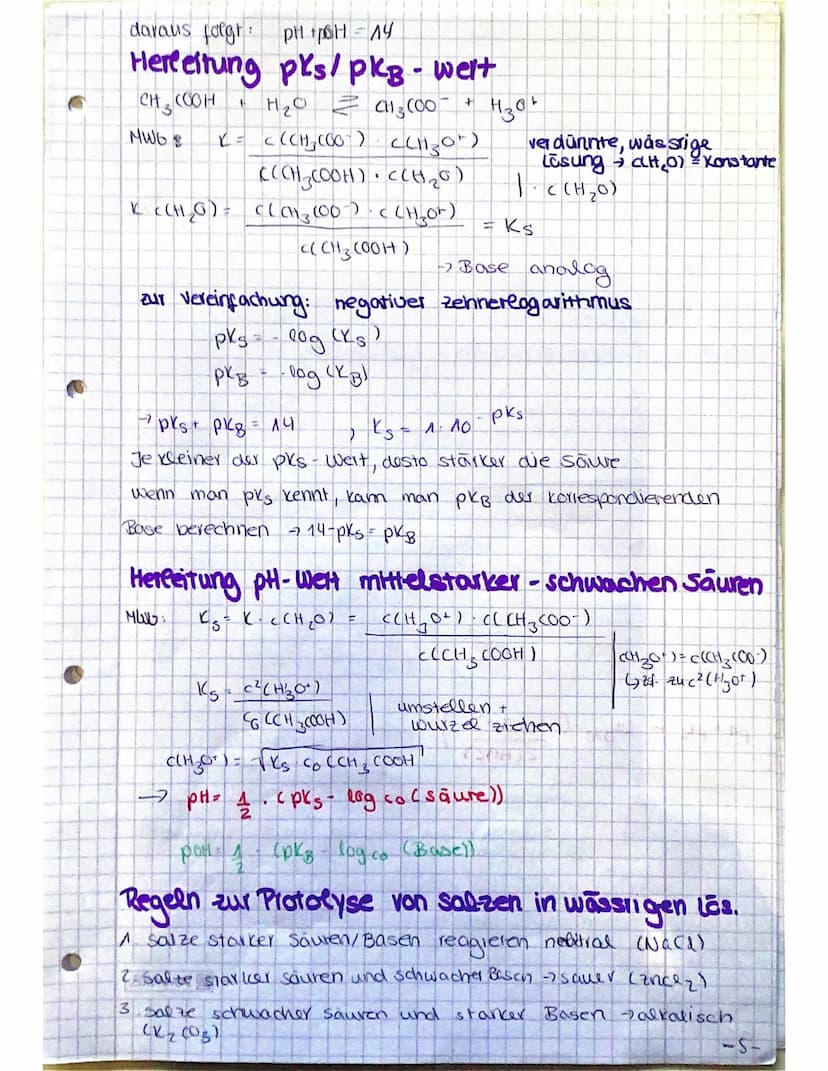 daraus folgt: pH + pOH = 14
Herleitung pKs/pKB-wert
CH3COOH + H2O ⇌ CH3COO⁻ + H3O⁺
MWG: K = c(CH3COO⁻) · c(H3O⁺)
c(CH3COOH) · c(H2O)
verdünnte, wässrige
Lösung → c(H2O) = Konstante
| · c(H2O)
K · c(H2O) = c(CH3COO⁻) · c(H3O⁺)
c(CH3COOH)
= Ks
→ Base analog
zur Vereinfachung: negativer zehnerlogarithmus
pKs = - log (Ks)
pKB = - log (KB)
→ pKs + pKB = 14 , Ks = 1 · 10^-pKs
Je kleiner der pKs-Wert, desto stärker die Säure
wenn man pKs kennt, kann man pKB der korrespondierenden
Base berechnen → 14-pKs = pKB
Herleitung pH-Wert mittelstarker-schwachen Säuren
MWG: Ks = K · c(H2O) = c(H3O⁺) · c(CH3COO⁻)
c(CH3COOH)
c(H3O⁺) = c(CH3COO⁻)
↳ zu c²(H3O⁺)
Ks = c²(H3O⁺)
c0(CH3COOH)
| umstellen +
wurzel ziehen
c(H3O⁺) = √Ks · c0(CH3COOH)
→ pH = 1/2 · (pKs - log c0 (säure))
pOH = 1/2 · (pKB - log c0 (Base))
Regeln zur Protolyse von salzen in wässrigen Lös.
1. salze starker säuren/Basen reagieren neutral (NaCl)
2. salze starker säuren und schwacher Basen → sauer (ZnCl2)
3. salze schwacher säuren und starker Basen → alkalisch
(K2CO3)
-5-